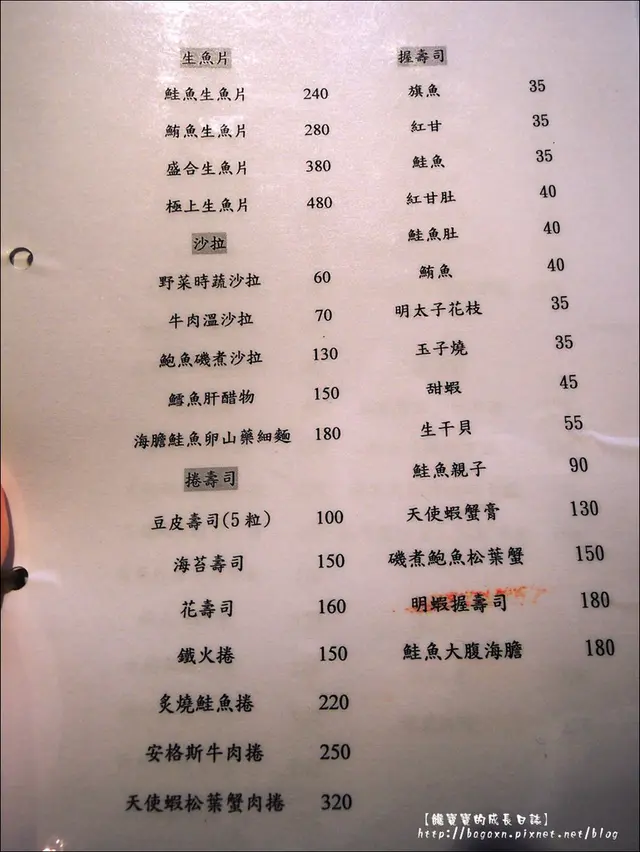 生魚片
鮭魚生魚片 240
鮪魚生魚片 280
盛合生魚片 380
極上生魚片 480
沙拉
野菜時蔬沙拉 60
牛肉溫沙拉 70
鮑魚磯煮沙拉 130
鱈魚肝醋物 150
海膽鮭魚卵山藥細麵 180
捲壽司
豆皮壽司(5粒) 100
海苔壽司 150
花壽司 160
鐵火捲 150
炙燒鮭魚捲 220
安格斯牛肉捲 250
天使蝦松葉蟹肉捲 320
握壽司
旗魚 35
紅甘 35
鮭魚 35
紅甘肚 40
鮭魚肚 40
鮪魚 40
明太子花枝 35
玉子燒 35
甜蝦 45
生干貝 55
鮭魚親子 90
天使蝦蟹膏 130
磯煮鮑魚松葉蟹 150
明蝦握壽司 180
鮭魚大腹海膽 180
【熊寶寶的成長日誌】
http://bogoxn.pixnet.net/blog